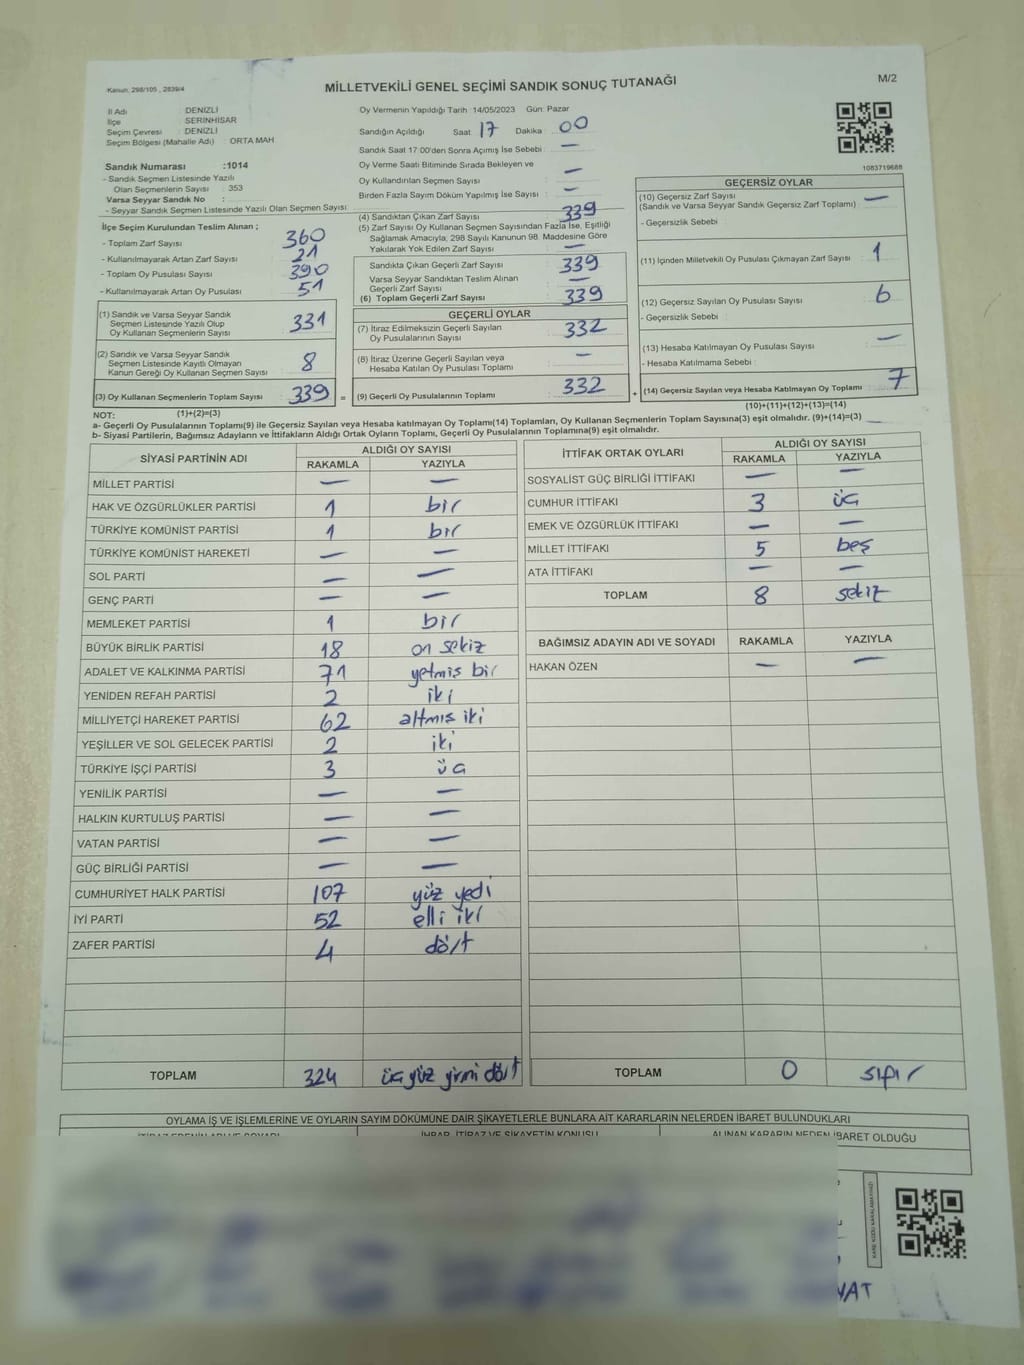 Kanun, 298/105 , 2839/4
MİLLETVEKİLİ GENEL SEÇİMİ SANDIK SONUÇ TUTANAĞI
M/2
İl Adı DENİZLİ
İlçe SERİNHİSAR
Seçim Çevresi : DENİZLİ
Seçim Bölgesi (Mahalle Adı) : ORTA MAH
Sandık Numarası :1014
- Sandık Seçmen Listesinde Yazılı
Olan Seçmenlerin Sayısı : 353
Varsa Seyyar Sandık No :
- Seyyar Sandık Seçmen Listesinde Yazılı Olan Seçmen Sayısı :
İlçe Seçim Kurulundan Teslim Alınan ;
- Toplam Zarf Sayısı 360
- Kullanılmayarak Artan Zarf Sayısı 21
- Toplam Oy Pusulası Sayısı 390
- Kullanılmayarak Artan Oy Pusulası 51
(1) Sandık ve Varsa Seyyar Sandık
Seçmen Listesinde Yazılı Olup
Oy Kullanan Seçmenlerin Sayısı 331
(2) Sandık ve Varsa Seyyar Sandık
Seçmen Listesinde Kayıtlı Olmayan
Kanun Gereği Oy Kullanan Seçmen Sayısı 8
(3) Oy Kullanan Seçmenlerin Toplam Sayısı 339 =
(1)+(2)=(3)
Oy Vermenin Yapıldığı Tarih : 14/05/2023 Gün: Pazar
Sandığın Açıldığı Saat : 17 Dakika : 00
Sandık Saat 17:00'den Sonra Açılmış İse Sebebi : —
Oy Verme Saati Bitiminde Sırada Bekleyen ve
Oy Kullandırılan Seçmen Sayısı : —
Birden Fazla Sayım Döküm Yapılmış İse Sayısı : —
(4) Sandıktan Çıkan Zarf Sayısı : 339
(5) Zarf Sayısı Oy Kullanan Seçmen Sayısından Fazla İse, Eşitliği
Sağlamak Amacıyla, 298 Sayılı Kanunun 98. Maddesine Göre
Yakılarak Yok Edilen Zarf Sayısı : —
Sandıkta Çıkan Geçerli Zarf Sayısı : 339
Varsa Seyyar Sandıktan Teslim Alınan
Geçerli Zarf Sayısı : —
(6) Toplam Geçerli Zarf Sayısı : 339
GEÇERLİ OYLAR
(7) İtiraz Edilmeksizin Geçerli Sayılan
Oy Pusulalarının Sayısı : 332
(8) İtiraz Üzerine Geçerli Sayılan veya
Hesaba Katılan Oy Pusulası Toplamı : —
(9) Geçerli Oy Pusulalarının Toplamı : 332 +
1083719688
GEÇERSİZ OYLAR
(10) Geçersiz Zarf Sayısı
(Sandık ve Varsa Seyyar Sandık Geçersiz Zarf Toplamı) : —
- Geçersizlik Sebebi :
(11) İçinden Milletvekili Oy Pusulası Çıkmayan Zarf Sayısı : 1
(12) Geçersiz Sayılan Oy Pusulası Sayısı : 6
- Geçersizlik Sebebi :
(13) Hesaba Katılmayan Oy Pusulası Sayısı : —
- Hesaba Katılmama Sebebi :
(14) Geçersiz Sayılan veya Hesaba Katılmayan Oy Toplamı : 7
(10)+(11)+(12)+(13)=(14)
NOT:
a- Geçerli Oy Pusulalarının Toplamı(9) ile Geçersiz Sayılan veya Hesaba katılmayan Oy Toplamı(14) Toplamları, Oy Kullanan Seçmenlerin Toplam Sayısına(3) eşit olmalıdır. (9)+(14)=(3)
b- Siyasi Partilerin, Bağımsız Adayların ve İttifakların Aldığı Ortak Oyların Toplamı, Geçerli Oy Pusulalarının Toplamına(9) eşit olmalıdır.
SİYASİ PARTİNİN ADI ALDIĞI OY SAYISI
RAKAMLA YAZIYLA
MİLLET PARTİSİ — —
HAK VE ÖZGÜRLÜKLER PARTİSİ 1 bir
TÜRKİYE KOMÜNİST PARTİSİ 1 bir
TÜRKİYE KOMÜNİST HAREKETİ — —
SOL PARTİ — —
GENÇ PARTİ — —
MEMLEKET PARTİSİ 1 bir
BÜYÜK BİRLİK PARTİSİ 18 on sekiz
ADALET VE KALKINMA PARTİSİ 71 yetmiş bir
YENİDEN REFAH PARTİSİ 2 iki
MİLLİYETÇİ HAREKET PARTİSİ 62 altmış iki
YEŞİLLER VE SOL GELECEK PARTİSİ 2 iki
TÜRKİYE İŞÇİ PARTİSİ 3 üç
YENİLİK PARTİSİ — —
HALKIN KURTULUŞ PARTİSİ — —
VATAN PARTİSİ — —
GÜÇ BİRLİĞİ PARTİSİ — —
CUMHURİYET HALK PARTİSİ 107 yüz yedi
İYİ PARTİ 52 elli iki
ZAFER PARTİSİ 4 dört
TOPLAM 324 üç yüz yirmi dört
İTTİFAK ORTAK OYLARI ALDIĞI OY SAYISI
RAKAMLA YAZIYLA
SOSYALİST GÜÇ BİRLİĞİ İTTİFAKI — —
CUMHUR İTTİFAKI 3 üç
EMEK VE ÖZGÜRLÜK İTTİFAKI — —
MİLLET İTTİFAKI 5 beş
ATA İTTİFAKI — —
TOPLAM 8 sekiz
BAĞIMSIZ ADAYIN ADI VE SOYADI RAKAMLA YAZIYLA
HAKAN ÖZEN — —
TOPLAM 0 sıfır
OYLAMA İŞ VE İŞLEMLERİNE VE OYLARIN SAYIM DÖKÜMÜNE DAİR ŞİKAYETLERLE BUNLARA AİT KARARLARIN NELERDEN İBARET BULUNDUKLARI
İTİRAZ EDENİN ADI VE SOYADI İHBAR, İTİRAZ VE ŞİKAYETİN KONUSU ALINAN KARARIN NEDEN İBARET OLDUĞU
KARE KODU KARALAMAYINIZ!